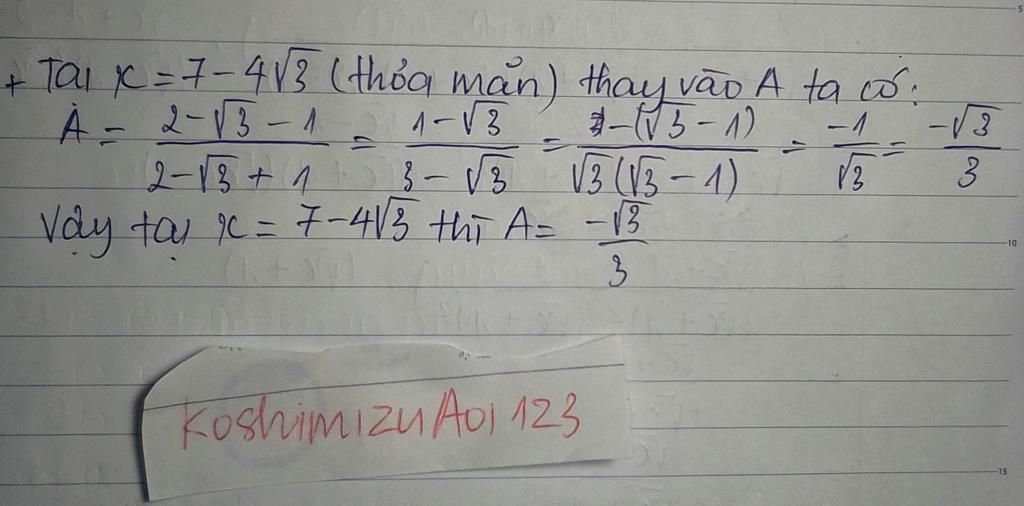 + Tại x = 7 - 4√3 (thỏa mãn) thay vào A ta có:
A = (2 - √3 - 1)/(2 - √3 + 1) = (1 - √3)/(3 - √3) = -(√3 - 1)/(√3(√3 - 1)) = -1/√3 = -√3/3
Vậy tại x = 7 - 4√3 thì A = -√3/3
KoshimizuAoi123
5
10
15